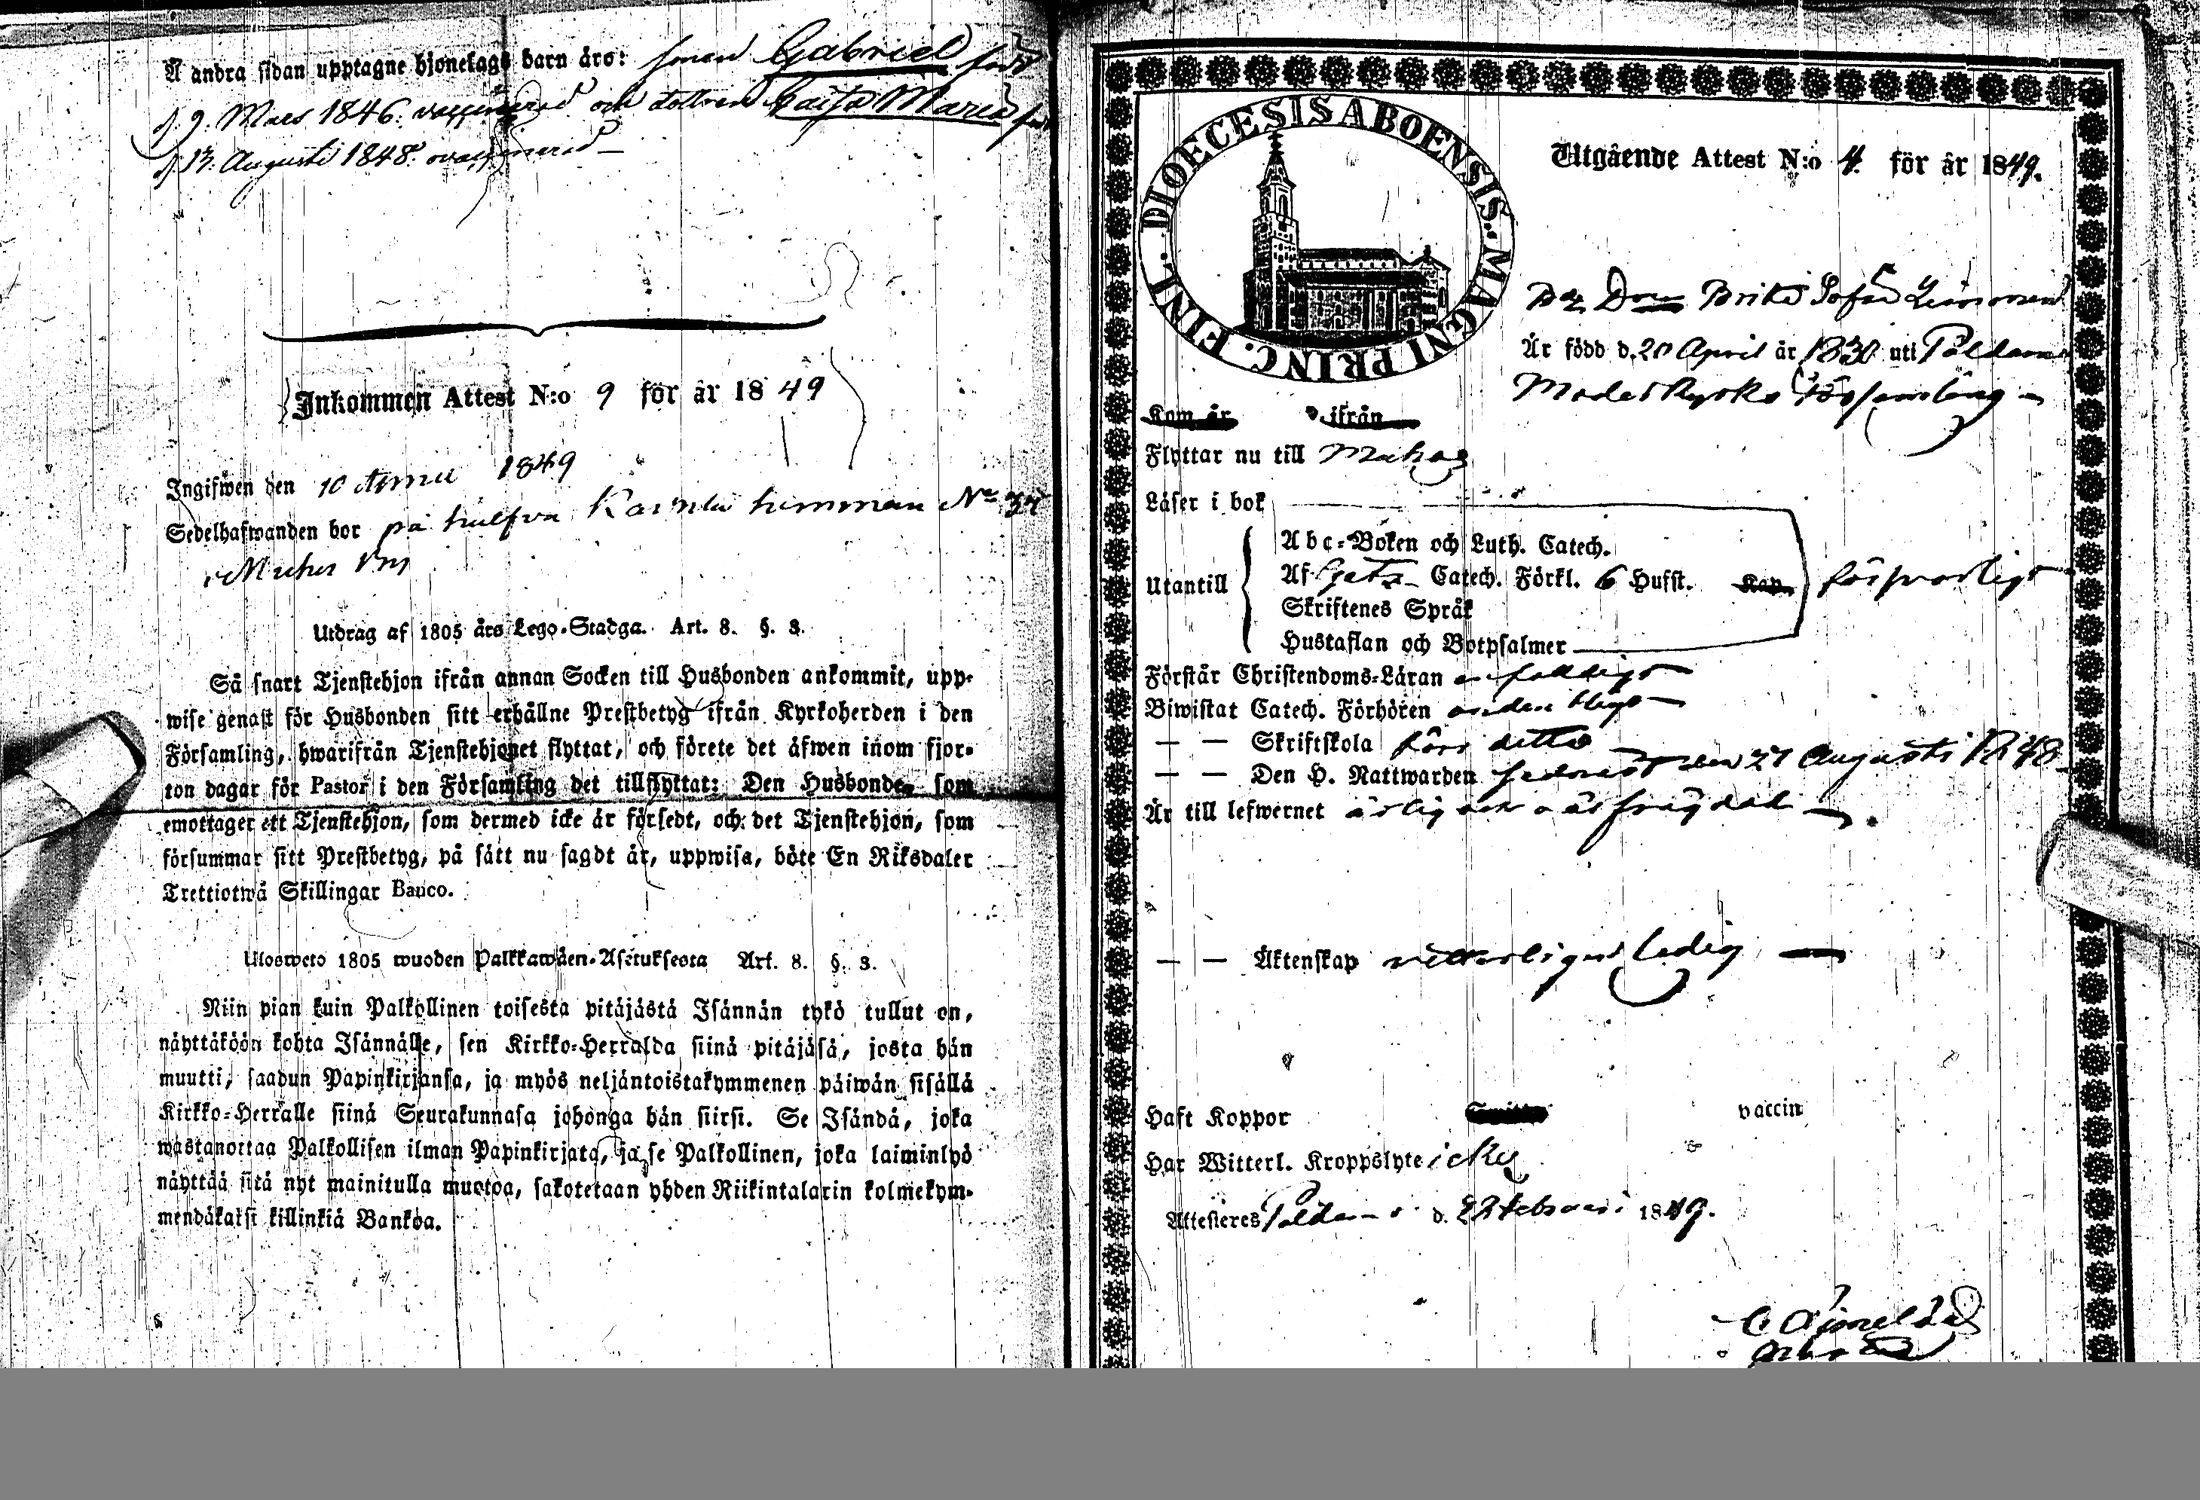 Å andra sidan upptagne hjonelags barn äro: sonen Gabriel född
d 9. Mars 1846. vaccinerad och dottren Caisa Maria
d 13. Augusti 1848. ovaccinerad
Inkommen Attest N:o 9 för år 1849
Ingifwen den 10 1849
Sedelhafwanden bor på hemman No
Utdrag af 1805 års Lego-Stadga. Art. 8. §. 3.
Så snart Tjenstehjon ifrån annan Socken till Husbonden ankommit, upp-
wise genast för Husbonden sitt erhållne Prestbetyg ifrån Kyrkoherden i den
Församling, hwarifrån Tjenstehjonet flyttat, och förete det äfwen inom fjor-
ton dagar för Pastor i den Församling det tillflyttat: Den Husbonde, som
emottager ett Tjenstehjon, som dermed icke är försedt, och det Tjenstehjon, som
försummar sitt Prestbetyg, på sätt nu sagdt är, uppwisa, böte En Riksdaler
Trettiotwå Skillingar Banco.
Ulosweto 1805 wuoden Palkkawäen-Asetuksesta Art. 8. §. 3.
Niin pian kuin Palkollinen toisesta pitäjästä Isännän tykö tullut on,
näyttäköön kohta Isännälle, sen Kirkko-Herralda siinä pitäjäsä, josta hän
muutti, saadun Papinkirjansa, ja myös neljäntoistakymmenen päiwän sisällä
Kirkko-Herralle siinä Seurakunnasa johonga hän siirsi. Se Isändä, joka
wastanottaa Palkollisen ilman Papinkirjata, ja se Palkollinen, joka laiminlyö
näyttää sitä nyt mainitulla muotoa, sakotetaan yhden Riikintalarin kolmekym-
mendäkaksi killinkiä Bankoa.
DIOECESIS ABOENSIS. MAGNI PRINC. FINL.
Utgående Attest N:o 4. för år 1849.
Brita Sofia
Är född d. 20 April år 1830 uti Paldamo
Moderkyrko Församling
Kom år ifrån
Flyttar nu till Muhos
Läser i bok
Utantill
Abc-Boken och Luth. Catech.
Af Catech. Förkl. 6 Hufst. Kap.
Skriftenes Språk
Hustaflan och Botpsalmer
försvarligt
Förstår Christendoms-Läran enfaldigt
Biwistat Catech. Förhören ordentligt
— — Skriftskola förr detta
— — Den H. Nattwarden sednast den 27 Augusti 1848
Är till lefwernet ärlig och wälfrägdad
— — Äktenskap vitterligen ledig
Haft Koppor vaccin
Har Witterl. Kroppslyte icke
Attesteres Paldamo d. 22 Februari 1849.